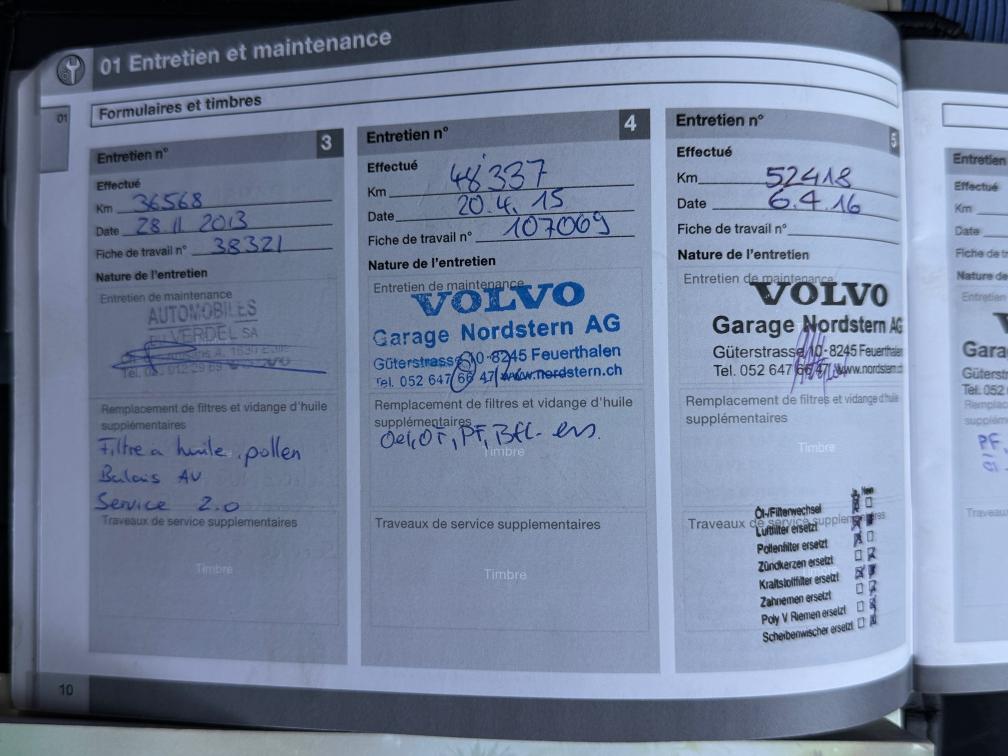 01 Entretien et maintenance
01
Formulaires et timbres
Entretien n° 3
Effectué
Km 36568
Date 28 11 2013
Fiche de travail n° 38321
Nature de l'entretien
Entretien de maintenance
AUTOMOBILES
VERDEL SA
Remplacement de filtres et vidange d'huile
supplémentaires
Filtre a huile, pollen
Balais AV
Service 2.0
Traveaux de service supplementaires
Timbre
Entretien n° 4
Effectué
Km 48337
Date 20.4.15
Fiche de travail n° 107069
Nature de l'entretien
Entretien de maintenance
VOLVO
Garage Nordstern AG
Güterstrasse 10 - 8245 Feuerthalen
Tel. 052 647 66 47 / www.nordstern.ch
Remplacement de filtres et vidange d'huile
supplémentaires
Oel, OF, PF, Bfl. ers.
Timbre
Traveaux de service supplementaires
Timbre
Entretien n° 5
Effectué
Km 52418
Date 6.4.16
Fiche de travail n°
Nature de l'entretien
Entretien de maintenance
VOLVO
Garage Nordstern AG
Güterstrasse 10 - 8245 Feuerthalen
Tel. 052 647 66 47 / www.nordstern.ch
Remplacement de filtres et vidange d'huile
supplémentaires
Timbre
Traveaux de service supplementaires
Nein
Öl-/Filterwechsel
Luftfilter ersetzt
Pollenfilter ersetzt
Zündkerzen ersetzt
Kraftstofffilter ersetzt
Zahnriemen ersetzt
Poly V Riemen ersetzt
Scheibenwischer ersetzt
10
Entretien
Effectué
Km
Date
Fiche de
Nature de
Entretien
Gara
Güters
Tel. 052
PF
Traveaux